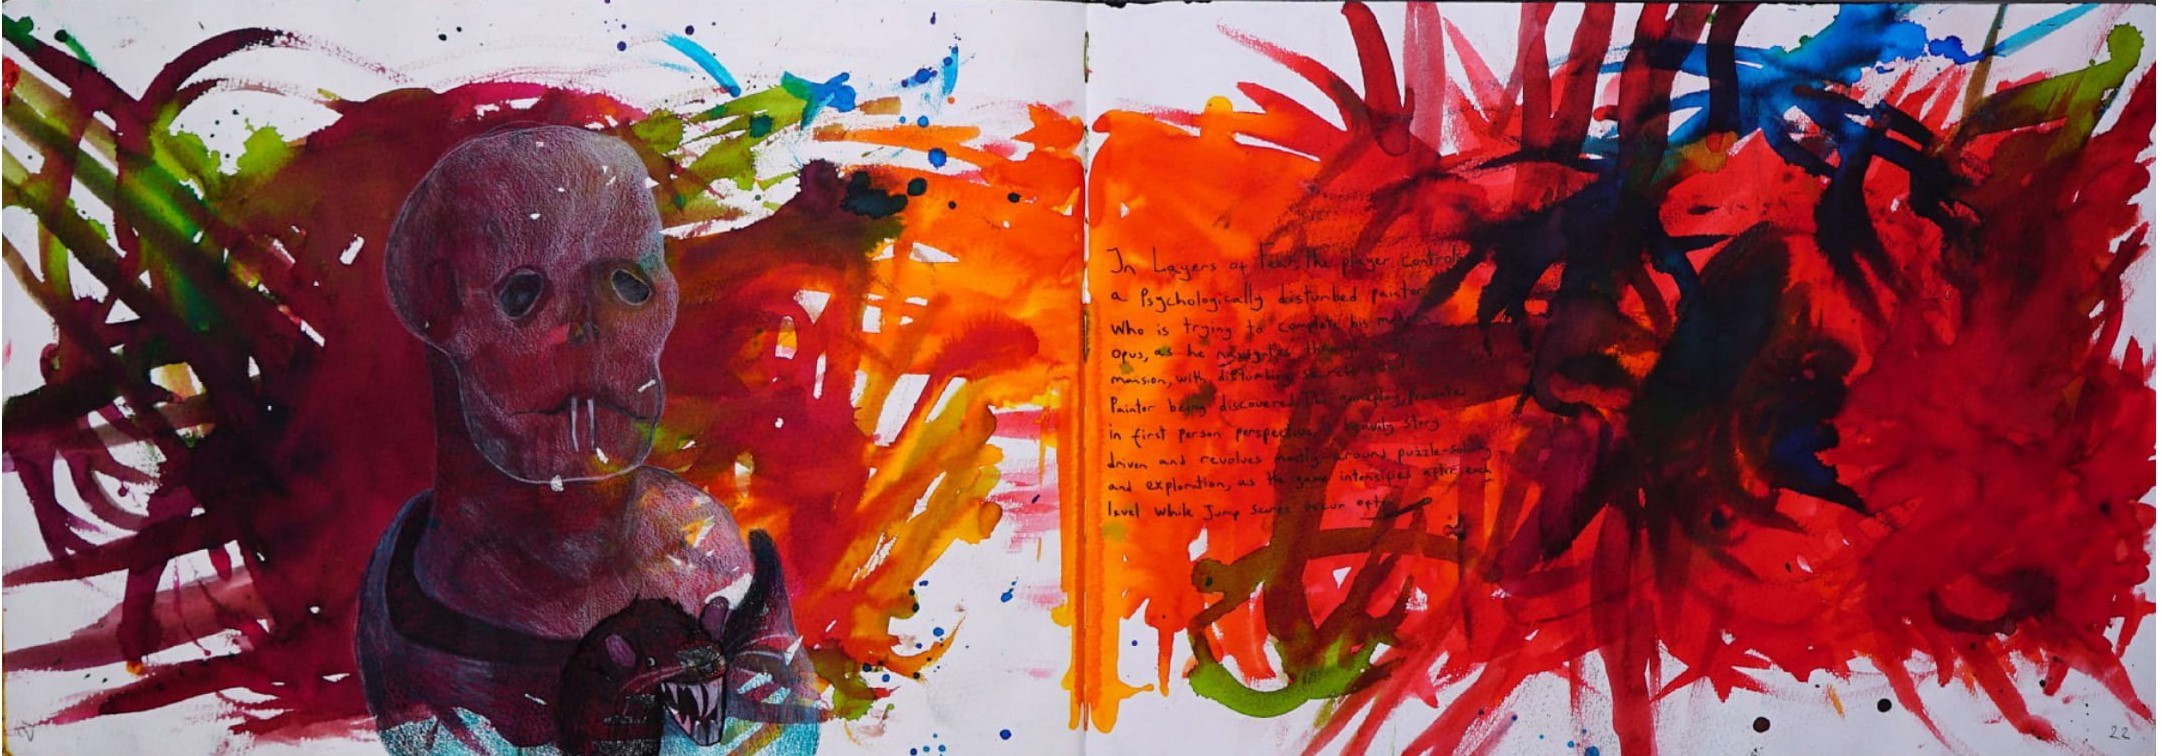 In Layers of Fear, the player controls
a Psychologically disturbed painter
Who is trying to complete his
Opus, as he navigates through
mansion, with disturbing secrets
Painter being discovered. The gameplay, presented
in first person perspective, heavily story
driven and revolves mostly around puzzle-solving
and exploration, as the game intensifies after each
level while Jump Scares occur often
22